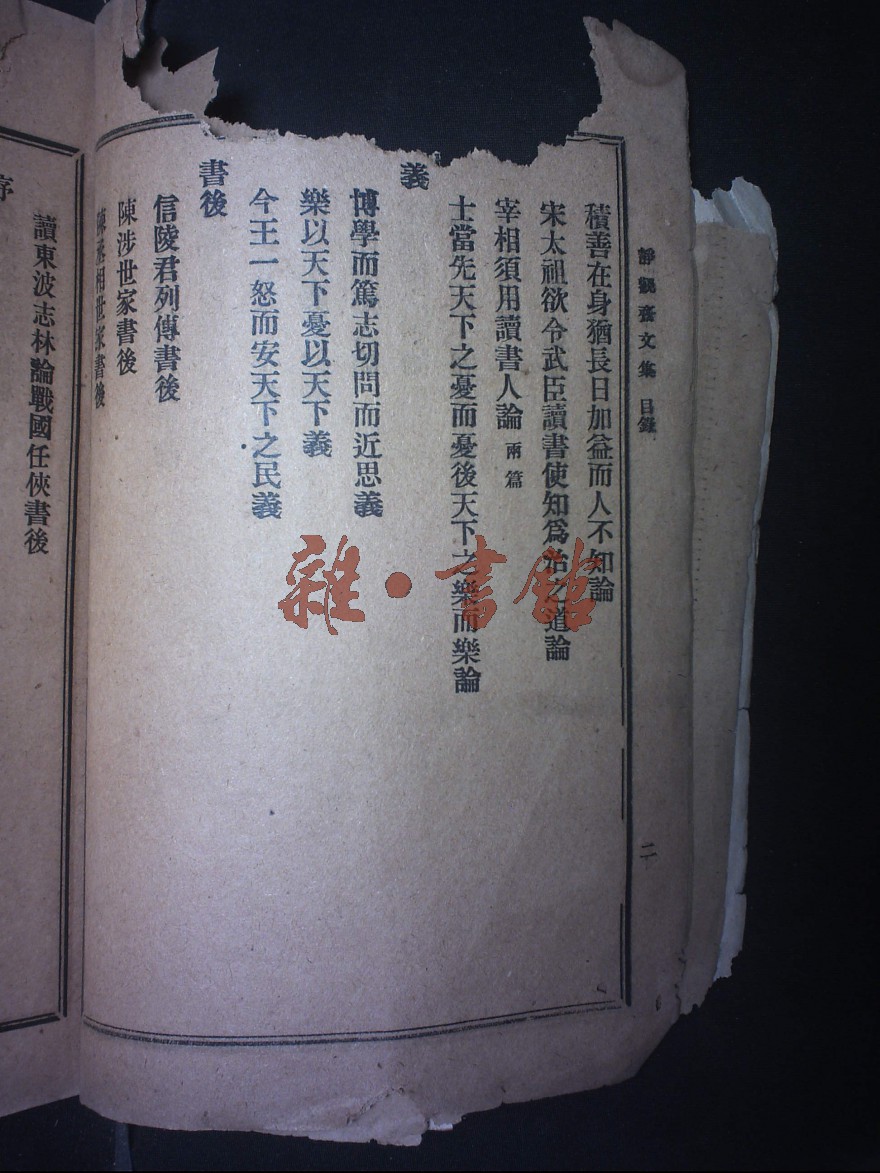 靜觀齋文集 目錄 二
積善在身猶長日加益而人不知論
宋太祖欲令武臣讀書使知爲治之道論
宰相須用讀書人論 兩篇
士當先天下之憂而憂後天下之樂而樂論
義
博學而篤志切問而近思義
樂以天下憂以天下義
今王一怒而安天下之民義
書後
信陵君列傳書後
陳涉世家書後
陳丞相世家書後
讀東坡志林論戰國任俠書後
序
雜·書館